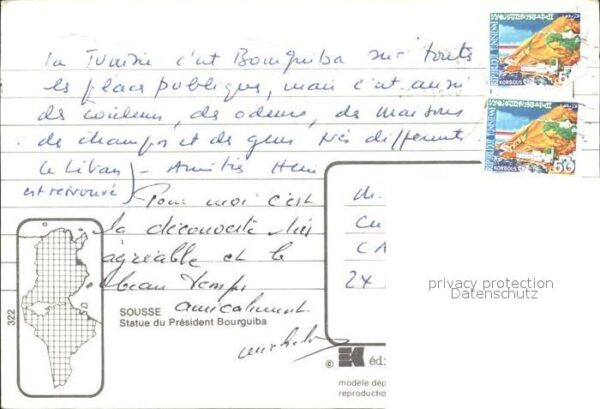 la Tunisie c'est Bourguiba sur toutes
les places publiques, mais c'est aussi
des couleurs, des odeurs, des maisons
des champs et des gens très différents
le Liban
est retrouvé) - Amitiés
Pour moi c'est
la découverte très
agréable et le
beau temps
amicalement
SOUSSE
Statue du Président Bourguiba
322
M.
CA
24
privacy protection
Datenschutz
© édi
modèle dép
reproductio
REPUBLIQUE TUNISIENNE
KORBOUS
50
REPUBLIQUE TUNISIENNE
KORBOUS
50